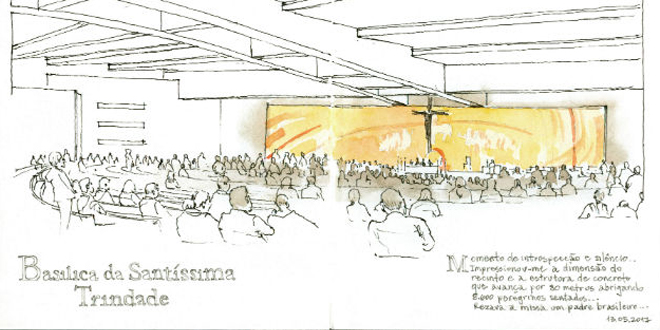 Basílica da Santíssima
Trindade
Momento de introspecção e silêncio...
Impressionou-me a dimensão do
recinto e a estrutura de concreto
que avança por 80 metros abrigando
8.000 peregrinos sentados...
Rezava a missa um padre brasileiro...
13.05.2017